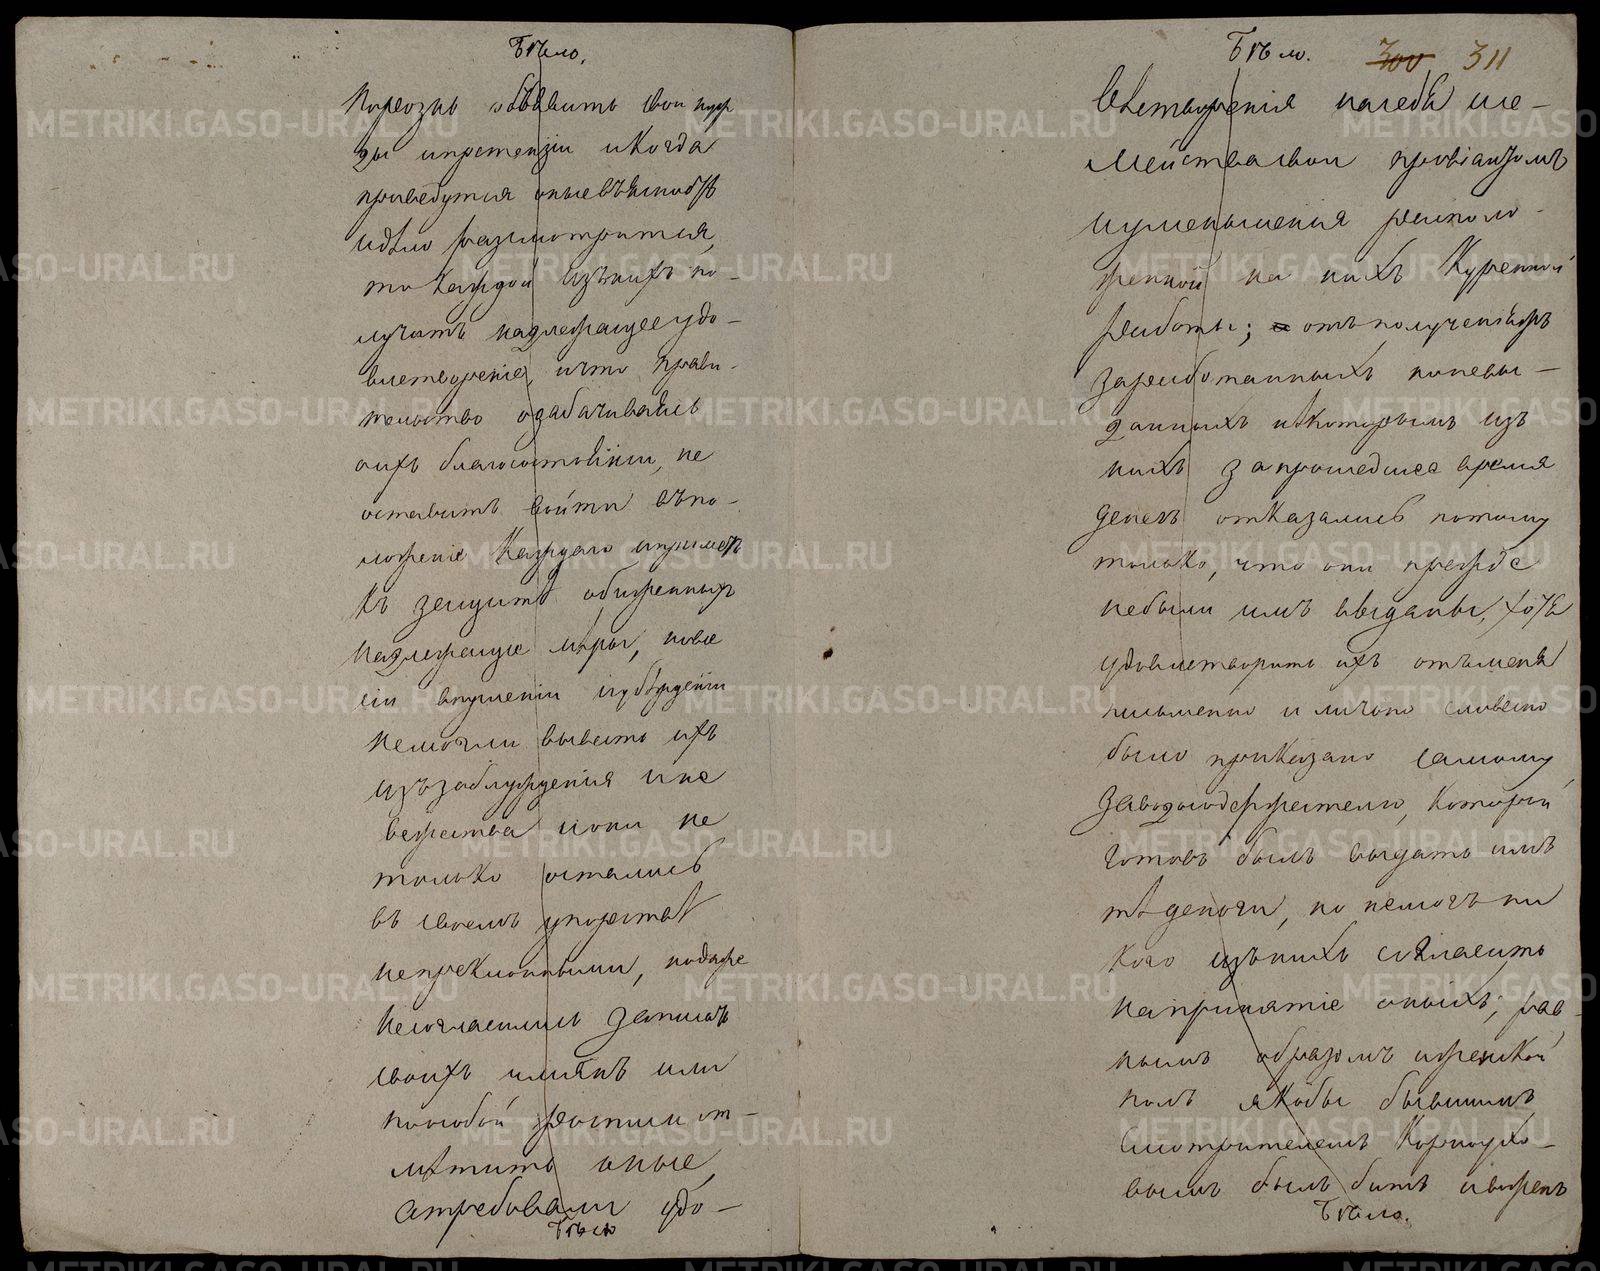 Бѣло.
порознь объявить свои нуж
ды и претензіи и когда
приведутся оные въ ясность
и дѣло разсмотрится,
то каждой изъ нихъ по-
лучитъ надлежащее удо-
влетвореніе, и что прави-
тельство озабачиваясь
о ихъ благосостояніи, не
оставитъ войти въ по-
ложеніе каждаго и приметъ
къ защитѣ обиженныхъ
надлежащіе мѣры, но все
сіи внушеніи и убѣжденіи
не могли вывесть ихъ
изъ заблужденія и не
вежества и они не
только остались
въ своемъ упорствѣ
непреклонными, но даже
не согласились записать
своихъ имянъ или
по особой росписи от-
мѣтить оные,
а требовали удо-
Бѣло
Бѣло.
300 311
влетворенія на себя и се-
мейства свои провіантомъ
и уменьшенія располо-
женной на нихъ куренной
работы; отъ полученія же
заработанныхъ и невы-
данныхъ некоторымъ изъ
нихъ за прошедшее время
денегъ отказались потому
только, что они прежде
не были имъ выданы, хотя
удовлетворить ихъ отъ меня
письменно и лично словесно
было приказано самому
заводосодержателю, которой
готовъ былъ выдать имъ
тѣ деньги, но не могъ ни
кого изъ нихъ согласить
на принятіе оныхъ; рав-
нымъ образомъ и женской
полъ якобы бывшимъ
смотрителемъ Корноухо-
вымъ былъ битъ
Бѣло.